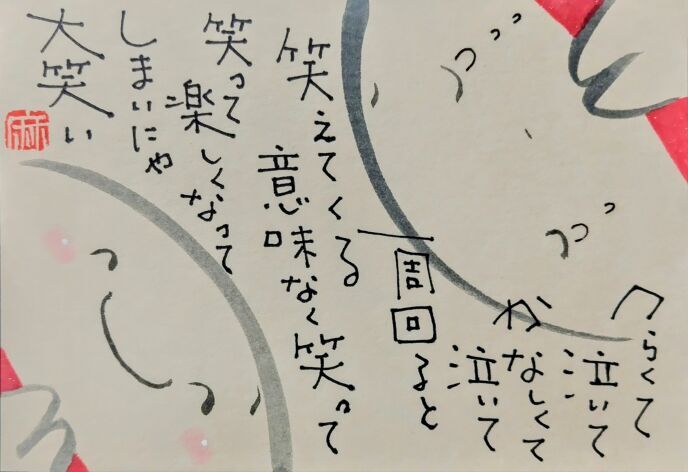 つらくて
泣いて
かなしくて
泣いて
一周回ると
笑えてくる
意味なく笑って
笑って
楽しくなって
しまいにゃ
大笑い
麻